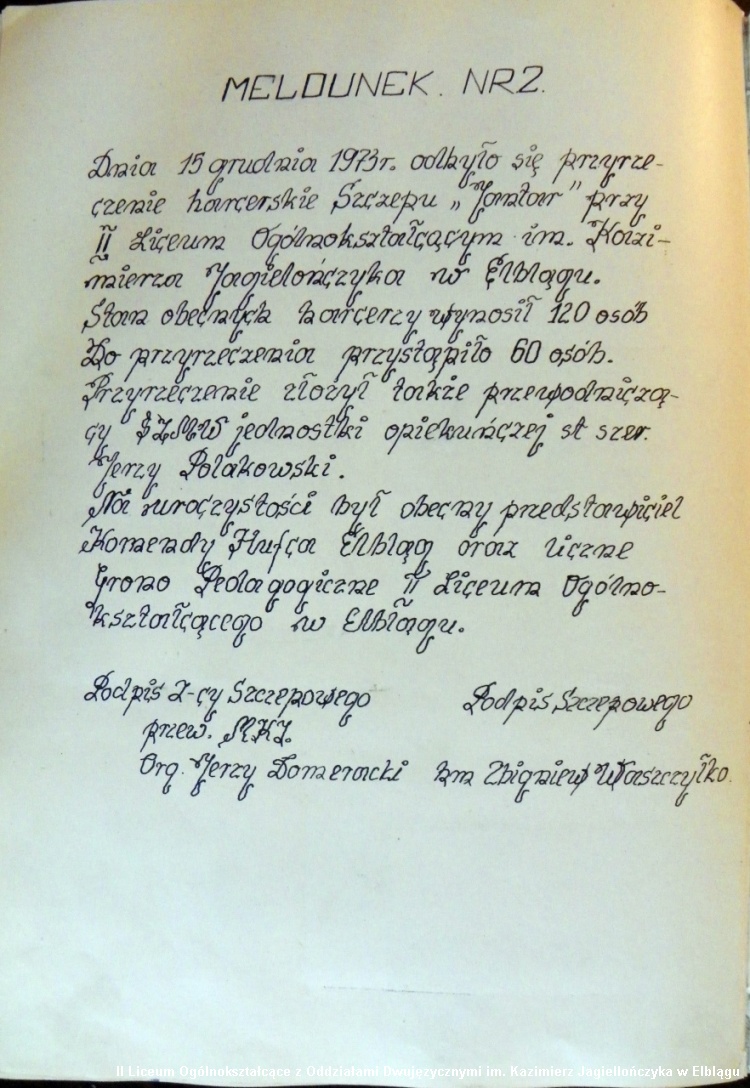 MELDUNEK. NR2.
Dnia 15 grudnia 1973r. odbyło się przyrze-
czenie harcerskie Szczepu „Jantar" przy
II Liceum Ogólnokształcącym im. Kazi-
mierza Jagielończyka w Elblągu.
Stan obecnych harcerzy wynosił 120 osób
Do przyrzeczenia przystąpiło 60 osób.
Przyrzeczenie złożył także przewodniczą-
cy SZMW jednostki opiekuńczej st szer.
Jerzy Polakowski.
Na uroczystości był obecny predstawiciel
Komendy Hufca Elbląg oraz liczne
Grono Pedagogiczne II Liceum Ogólno-
kształcącego w Elblągu.
Podpis Z-cy Szczepowego Podpis Szczepowego
przew. MKI.
Org. Jerzy Domeracki hm Zbigniew Waszczyłko.
II Liceum Ogólnokształcące z Oddziałami Dwujęzycznymi im. Kazimierz Jagiellończyka w Elblągu